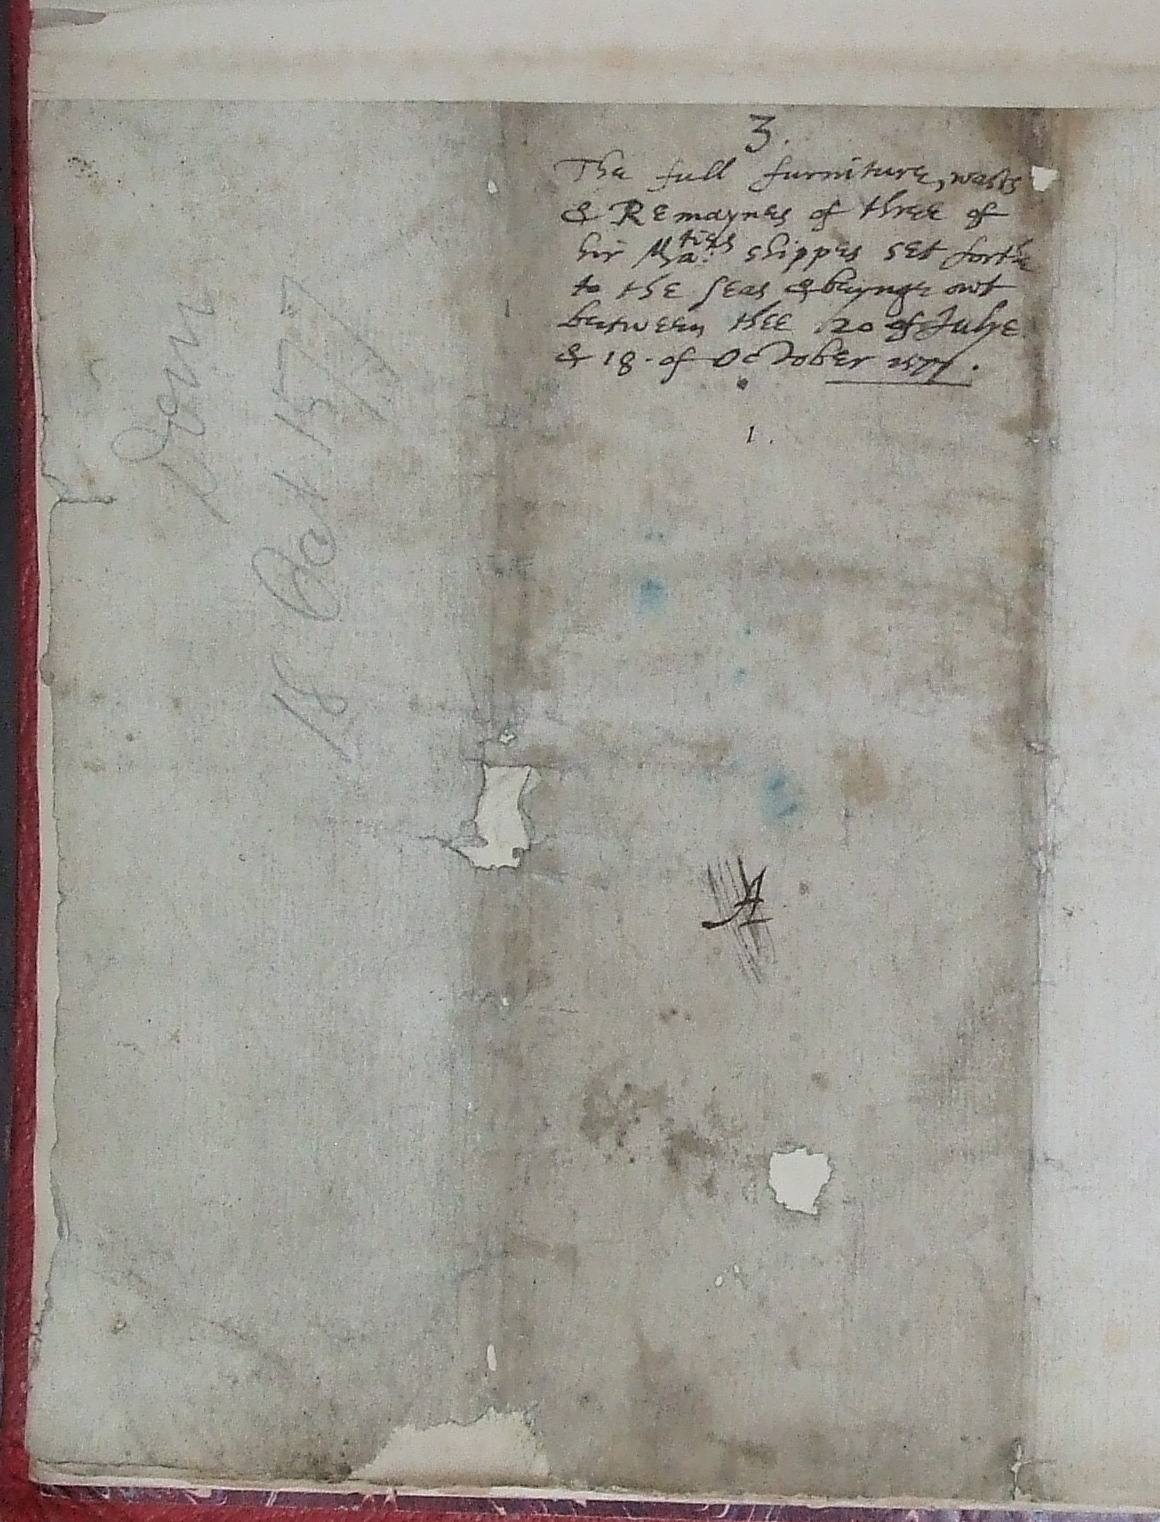 3.
The full furniture, wasts
& Remaynes of three of
hir Ma.ties shippes set forthe
to the seas & beynge owt
between thee 20 of Julye
& 18 of October 1577.
1.
A
Dom
18 Oct 1577